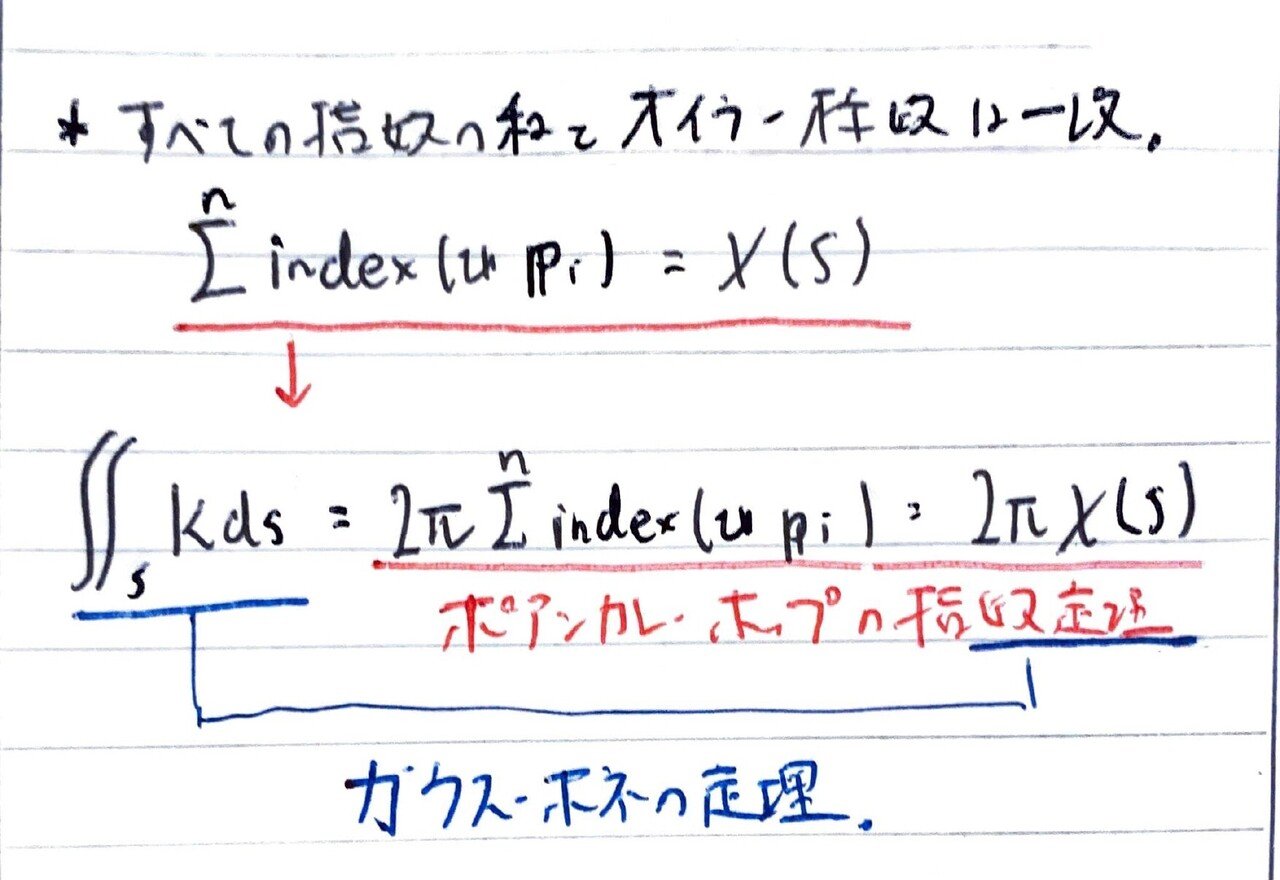 * すべての指数の和とオイラー標数は一致.
n
Σ index(u pi) = χ(S)
↓
∬s Kds = 2π Σⁿ index(u pi) = 2πχ(S)
ポアンカレ・ホップの指数定理
ガウス・ボネの定理.